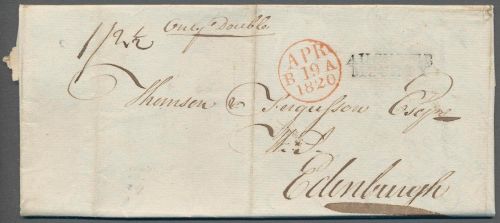 1/2½
Only Double
APR
B 19 A
1820
Thomson & Fergusson Esqre
W.S.
Edinburgh